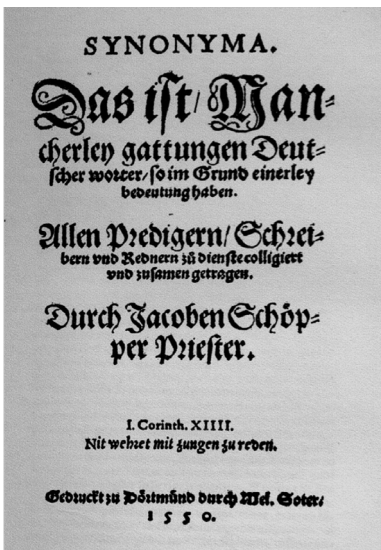 SYNONYMA.
Das ist/ Man-
cherley gattungen Deut-
scher worter/ so im Grund einerley
bedeutung haben.
Allen Predigern/ Schrei-
bern vnd Rednern zů dienste colligiert
vnd zusamen getragen.
Durch Jacoben Schöp-
per Priester.
I. Corinth. XIIII.
Nit wehret mit zungen zu reden.
Gedruckt zu Dörtmünd durch Mel. Soter/
1550.